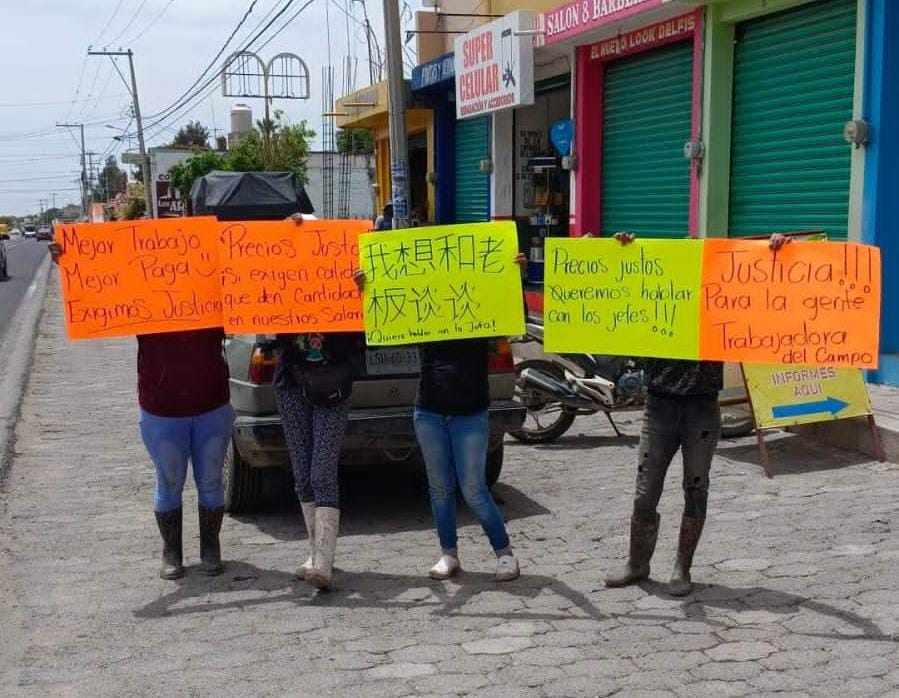 Mejor Trabajo
Mejor Paga
Exigimos Justicia
Precios Justo
Si exigen calid
que den Cantidad
en nuestros Salar
我想和老
板谈谈
¡Quiero hablar con la Jefa!
Precios justos
Queremos hablar
con los jefes!!!
Justicia!!!
Para la gente
Trabajadora
del Campo
SUPER
CELULAR
REPARACIÓN Y ACCESORIOS
SALON 8 BARBER
EL NUEVO LOOK DELFIS
INFORMES
AQUI